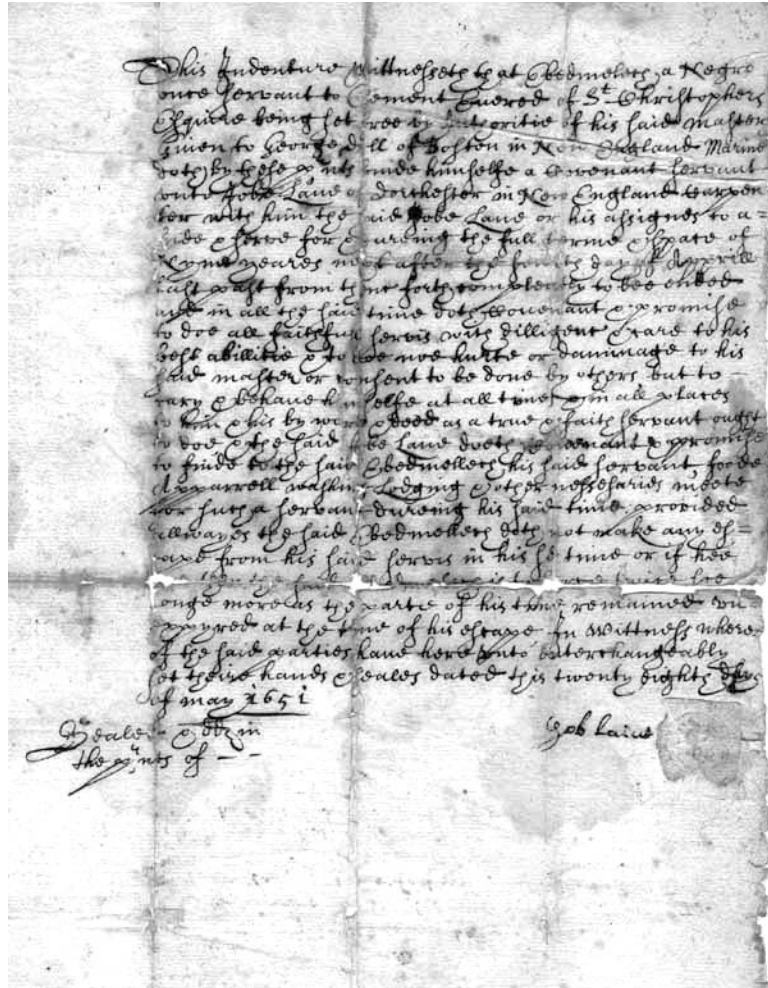 This Indenture Wittnesseth that Ebedmelech a Negro
once servant to Clement Euered of St. Christophers
Esquire being set free by Authoritie of his said Master
Giuen to George Dill of Boston in New England Marine
doth by these pnts binde himselfe a Covenant servant
vnto Jobe Lane of Dorchester in New England Carpen
ter with him the said Jobe Lane or his assignes to a=
bide & serve for & dureing the full terme & space of
yeares next after the day of Apprill
last past from thence forth compleatly to bee ended
and in all the said time doth Couenant & promise
to doe all faithfull servis with dilligent Ceare to his
best abillitie & to doe noe hurte or dammage to his
said master or consent to be done by others but to
cary & behaue himselfe at all times & in all places
to him & his by word & deed as a true & faith servant ought
to doe & the said Jobe Lane doeth Couenant & promise
to finde to the said Ebedmellech his said servant foode
Apparrell washing Lodging & other nessesaries meete
for such a servant dureing his said time: provided
allwayes the said Ebedmellech doth not make any es=
cape from his said servis in his sd time or if hee
longe more as the parte of his time remained vn
expyred at the time of his escape In Wittness where
of the said parties haue here vnto enterchangeably
set theire hands & seales dated this twenty eighth day
of may 1651
Sealed & dd in
the pnts of --
Job Laine